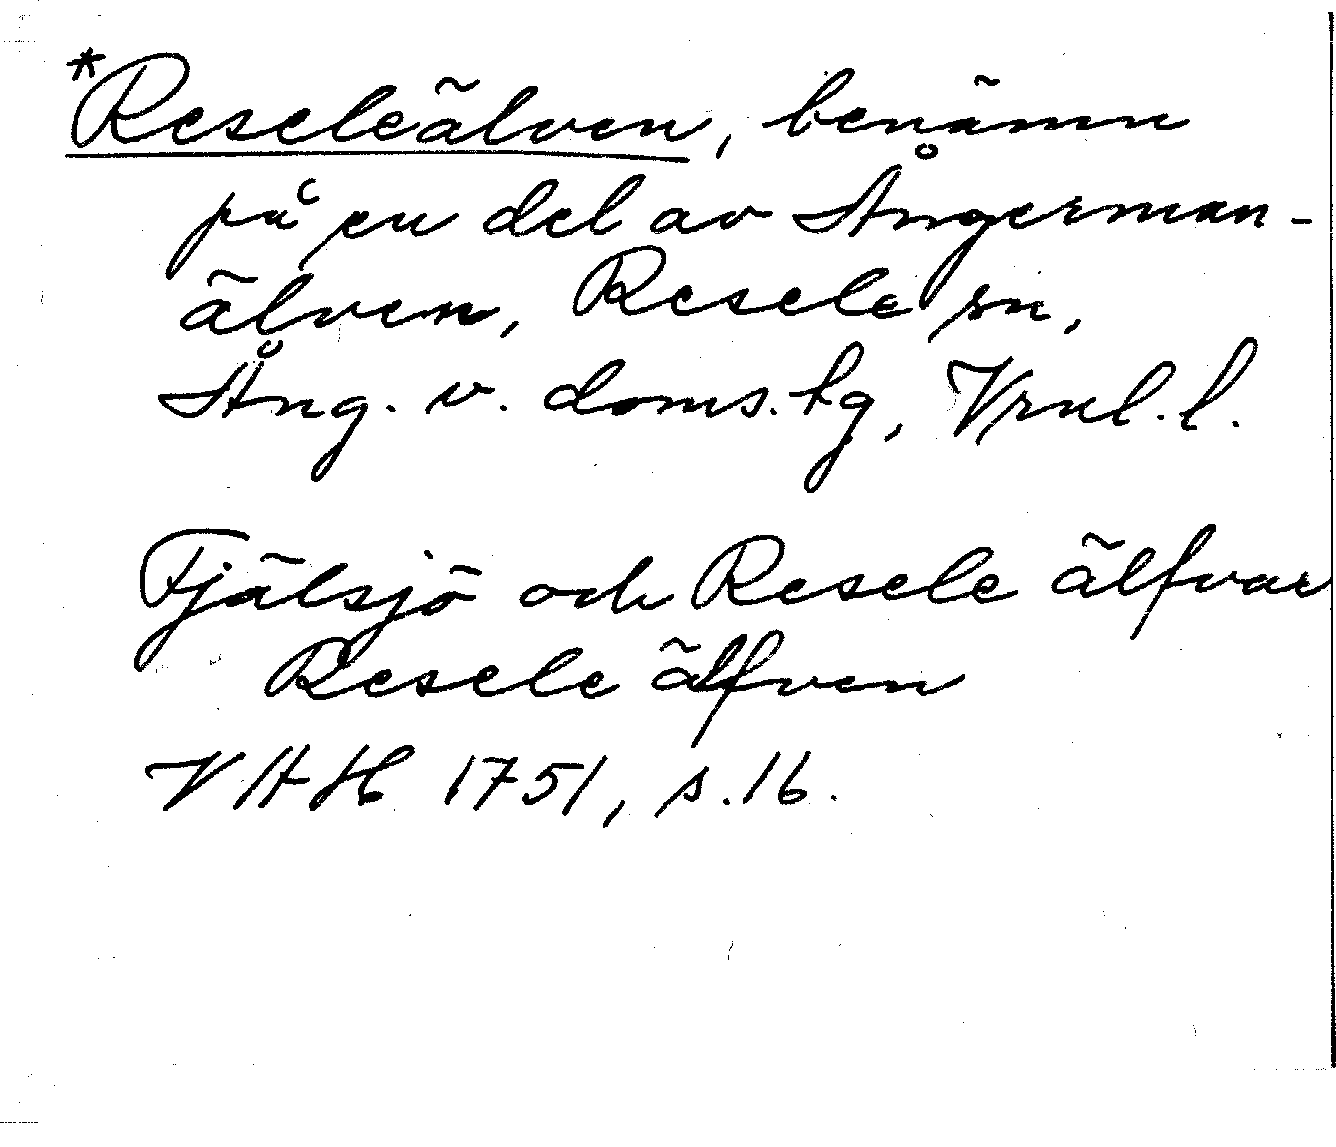 *Reseleälven, benämn
på en del av Ångerman-
älven, Resele sn,
Ång. v. doms. tg, Vrnl. l.
Fjälsjö och Resele älfvar
Resele älfven
VAH 1751, s. 16.